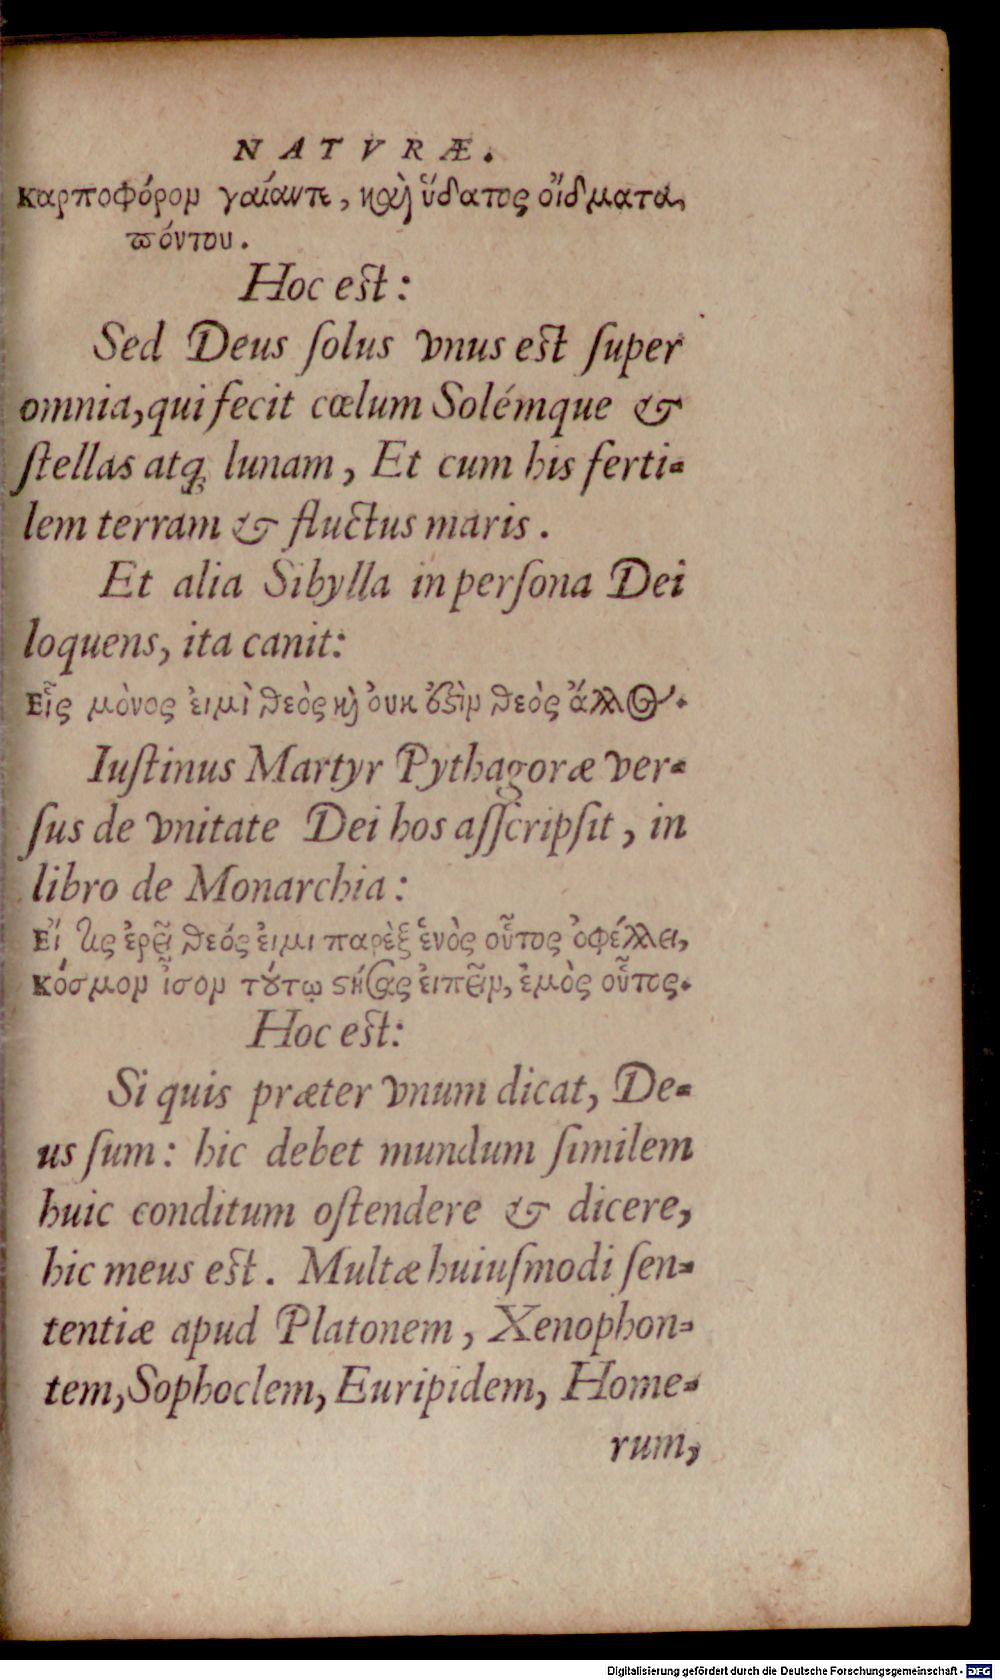 NATVRÆ.
καρποφόρομ γαίαντε, καὶ ὕδατος οἴδματα,
πόντου.
Hoc est:
Sed Deus ſolus vnus est ſuper
omnia, qui fecit cœlum Solémque &
ſtellas atq; lunam, Et cum his ferti-
lem terram & fluctus maris.
Et alia Sibylla in perſona Dei
loquens, ita canit:
Εἷς μὸνος ἐιμὶ θεὸς κὶ ὀυκ ὄϛὶμ θεὸς ἄλλος.
Iuſtinus Martyr Pythagoræ ver-
ſus de vnitate Dei hos aſſcripſit, in
libro de Monarchia:
Εἴ τις ἐρεῖ θεός ἐιμι παρὲξ ἑνὸς οὗτος ὀφέλλει,
κόσμομ ἶσομ τούτῳ ϛήσας ἐιπεῖμ, ἐμὸς οὗτος.
Hoc est:
Si quis præter vnum dicat, De-
us ſum: hic debet mundum ſimilem
huic conditum oſtendere & dicere,
hic meus est. Multæ huiuſmodi ſen-
tentiæ apud Platonem, Xenophon-
tem, Sophoclem, Euripidem, Home-
rum,
Digitalisierung gefördert durch die Deutsche Forschungsgemeinschaft - DFG